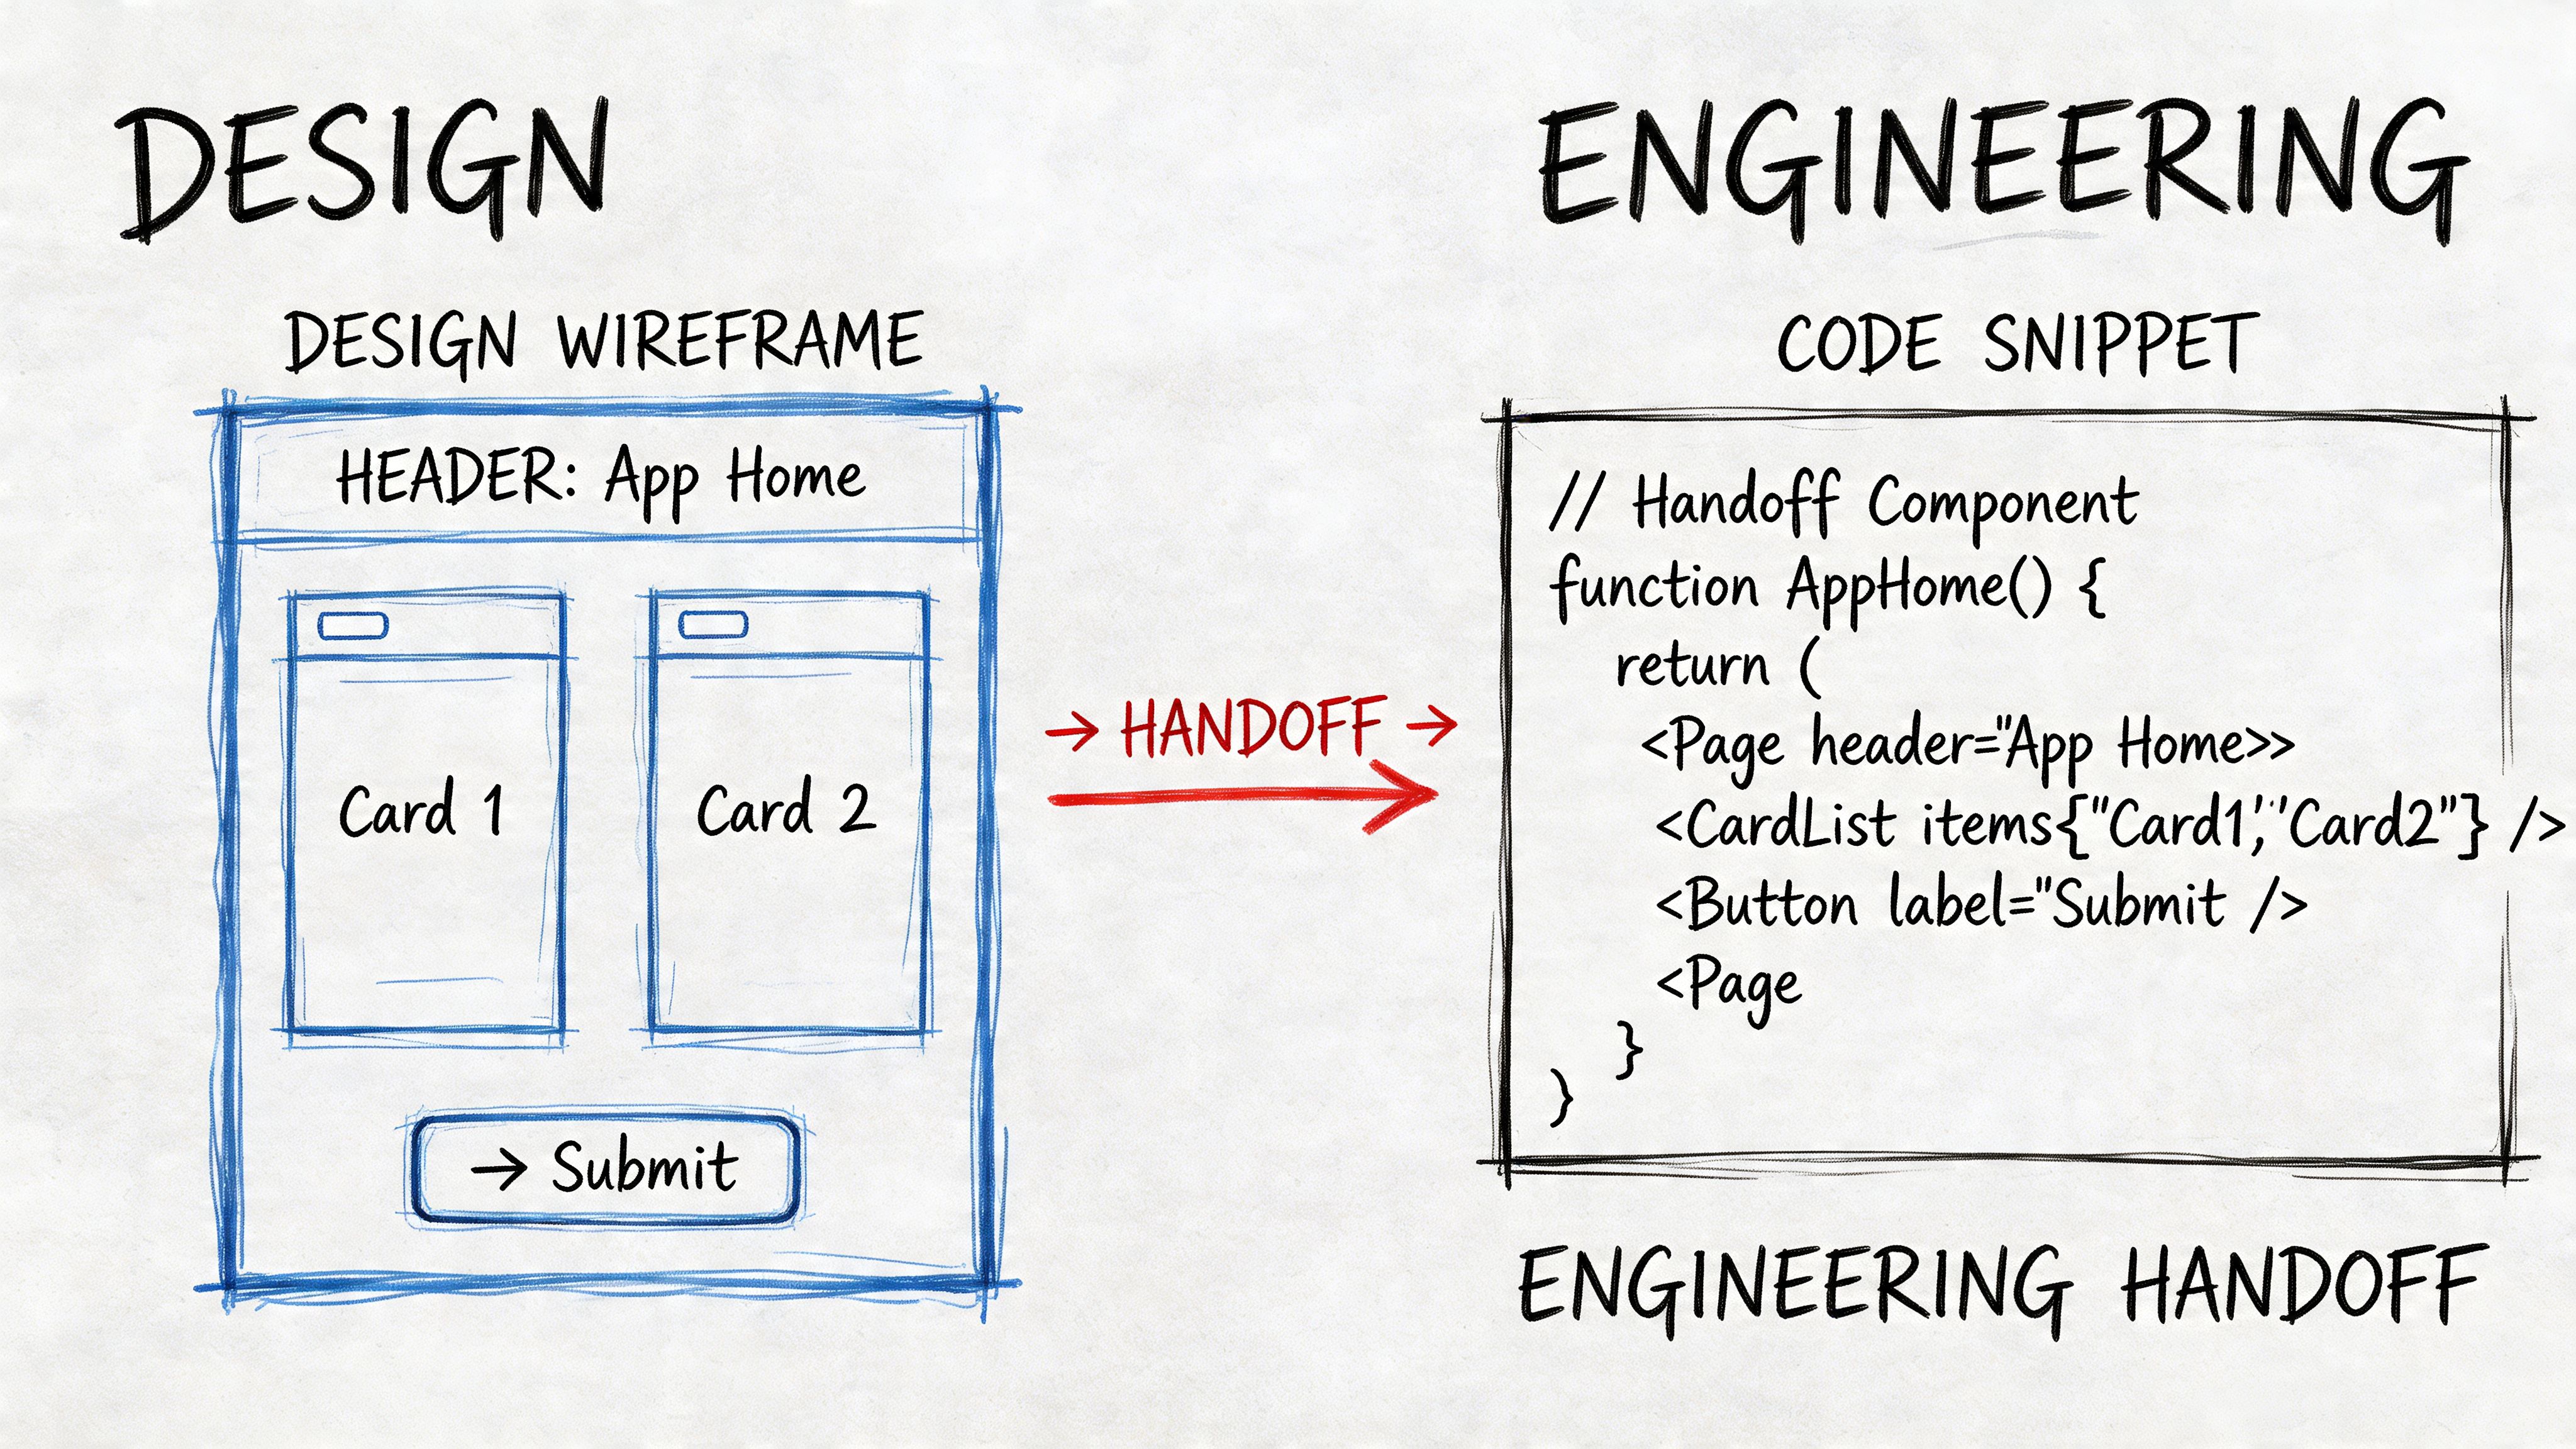 DESIGN
DESIGN WIREFRAME
HEADER: App Home
Card 1
Card 2
→ Submit
→ HANDOFF →
ENGINEERING
CODE SNIPPET
// Handoff Component
function AppHome() {
return (
<Page header="App Home>>
<CardList items{"Card1','Card2"} />
<Button label="Submit />
<Page
}
}
ENGINEERING HANDOFF